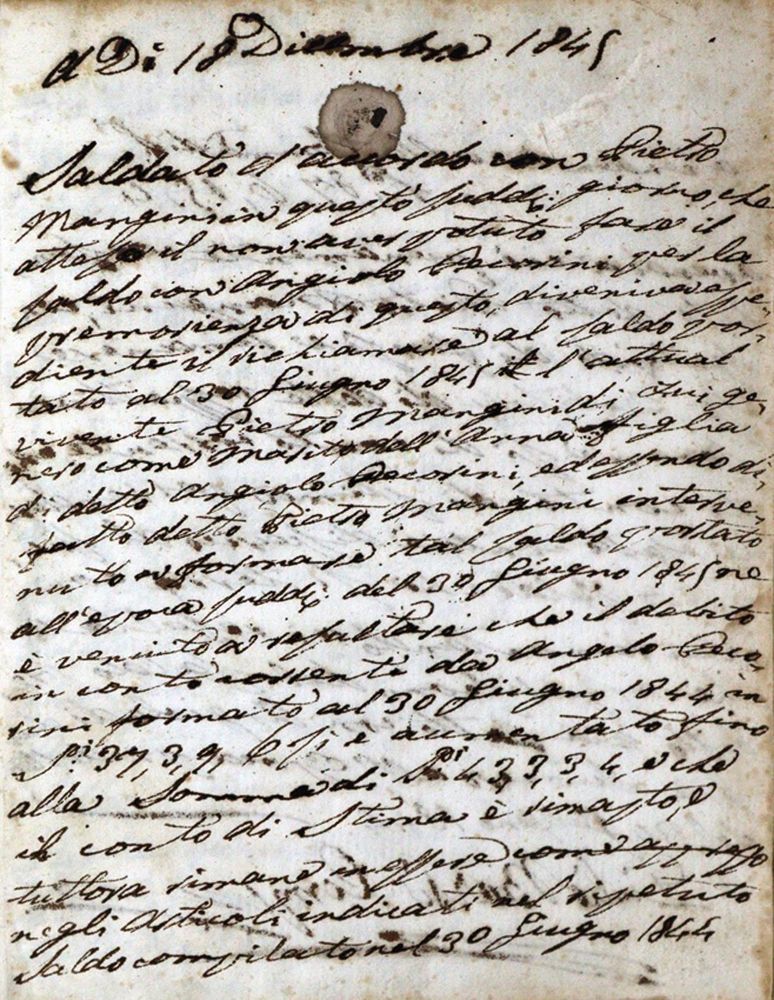 A Dì 18 Dicembre 1845
Saldato d'accordo con Pietro
Mangini in questo sudd: giorno, che
atteso il non aver potuto fare il
saldo con Angiolo Pecorini per la
premorienza di questo, diveniva espe-
diente il richiamare al saldo por-
tato al 30 Giugno 1845 l'attual
vivente Pietro Mangini di lui ge-
nero come marito dell'Anna figlia
di detto Angiolo Pecorini, ed essendo di-
fatto detto Pietro Mangini interve-
nuto a formare tal saldo portato
all'epoca sudd: del 30 Giugno 1845 ne
è venuto a resultare che il debito
in conto corrente da Angelo Peco-
rini formato al 30 Giugno 1844 in
P.i 37, 3, 9, 6 si è aumentato fino
alla Somma di P.i 43, 3, 3, 4, e che
il conto di Stima è rimasto, e
tuttora rimane in essere come appresso
negli Articoli indicati nel ripetuto
Saldo compilato nel 30 Giugno 1844